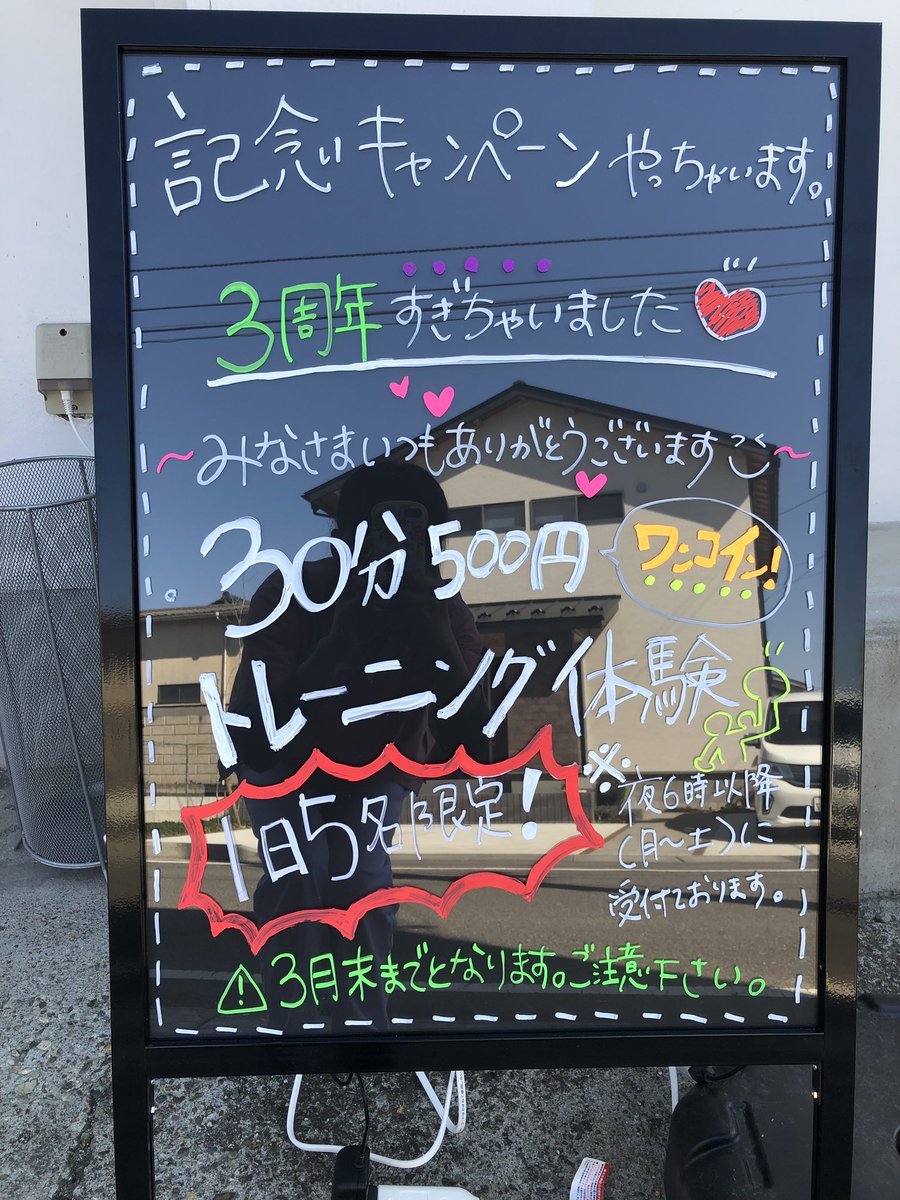 記念キャンペーンやっちゃいます。
3周年すぎちゃいました
〜みなさまいつもありがとうございます〜
30分500円
ワンコイン!
トレーニング体験
1日5名限定!
※夜6時以降
(月〜土)に
受付ております。
⚠3月末までとなります。ご注意下さい。